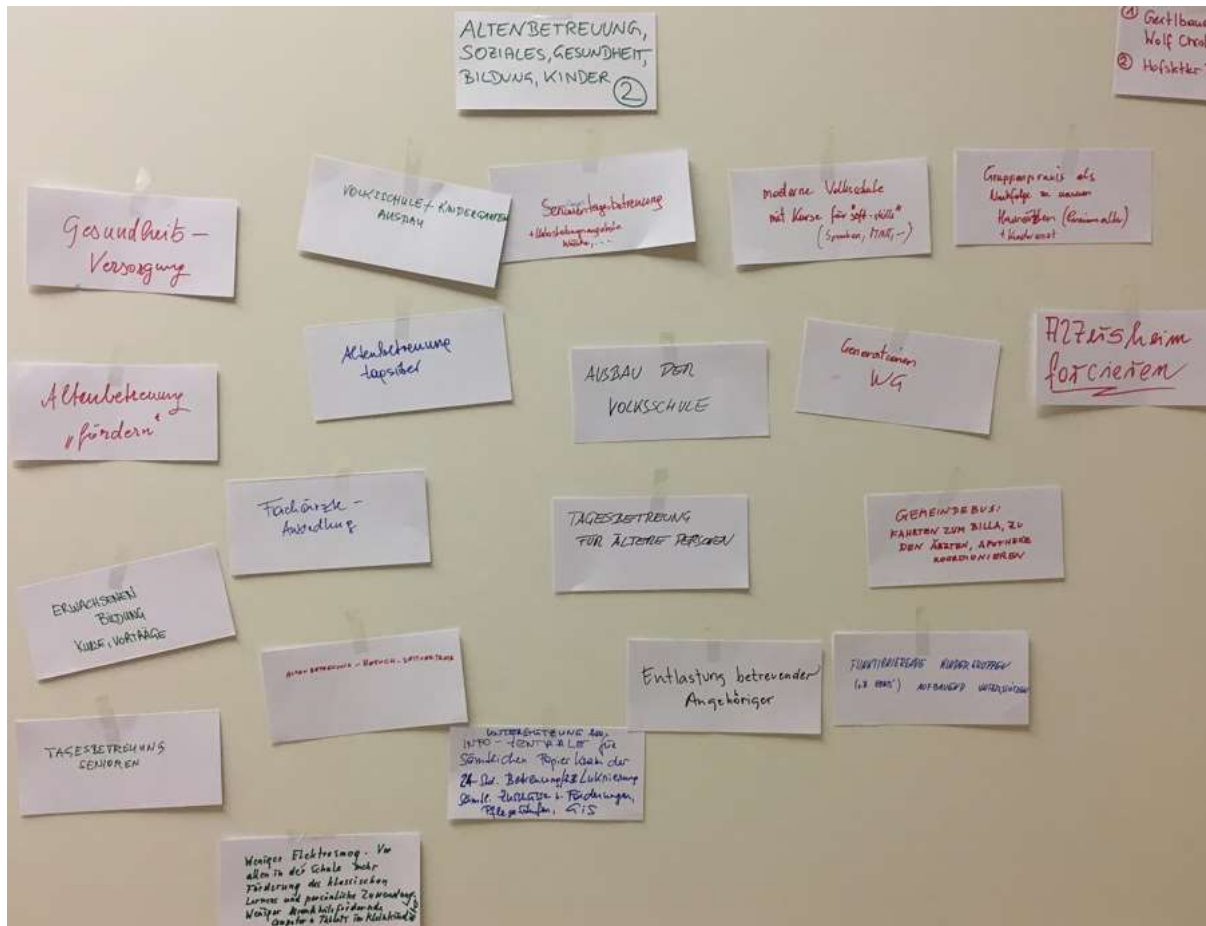 ALTENBETREUUNG,
SOZIALES, GESUNDHEIT,
BILDUNG, KINDER
2
① Gertlbaue
Wolf
② Hofstetter
Gesundheits-
Versorgung
VOLKSSCHULE + KINDERGARTEN
AUSBAU
Seniorentagesbetreuung
moderne Volksschule
mit Kurse für "soft-skills"
(Sprachen, MINT, ...)
Gruppenpraxis als
Nachfolge zu unseren
Hausärzten
+ Kinderarzt
Altenbetreuung
"fördern"
Altenbetreuung
tagsüber
AUSBAU DER
VOLKSSCHULE
Generationen
WG
Altersheim
forcieren
Fachärzte -
Ansiedlung
TAGESBETREUUNG
FÜR ÄLTERE PERSONEN
GEMEINDEBUS:
FAHRTEN ZUM BILLA, ZU
DEN ÄRZTEN, APOTHEKE
KOORDINIEREN
ERWACHSENEN
BILDUNG
KURSE, VORTRÄGE
ALTENBETREUUNG - BESUCH
Entlastung betreuender
Angehöriger
FUNKTIONIERENDE KINDERGRUPPEN
AUFBAUEND UNTERSTÜTZEN
TAGESBETREUUNG
SENIOREN
UNTERSTÜTZUNG
INFO-ZENTRALE für
Sämtlichen Papierkram der
24-Std. Betreuung Lukrierung
Sämtl. Zuschüsse u. Förderungen,
Pflegestufen, GIS
Weniger Elektrosmog. Vor
allem in der Schule mehr
Förderung des klassischen
Lernens und persönliche Zuwendung.
Weniger krankheitsfördernde
Computer + Tablets im Kleinkindalter